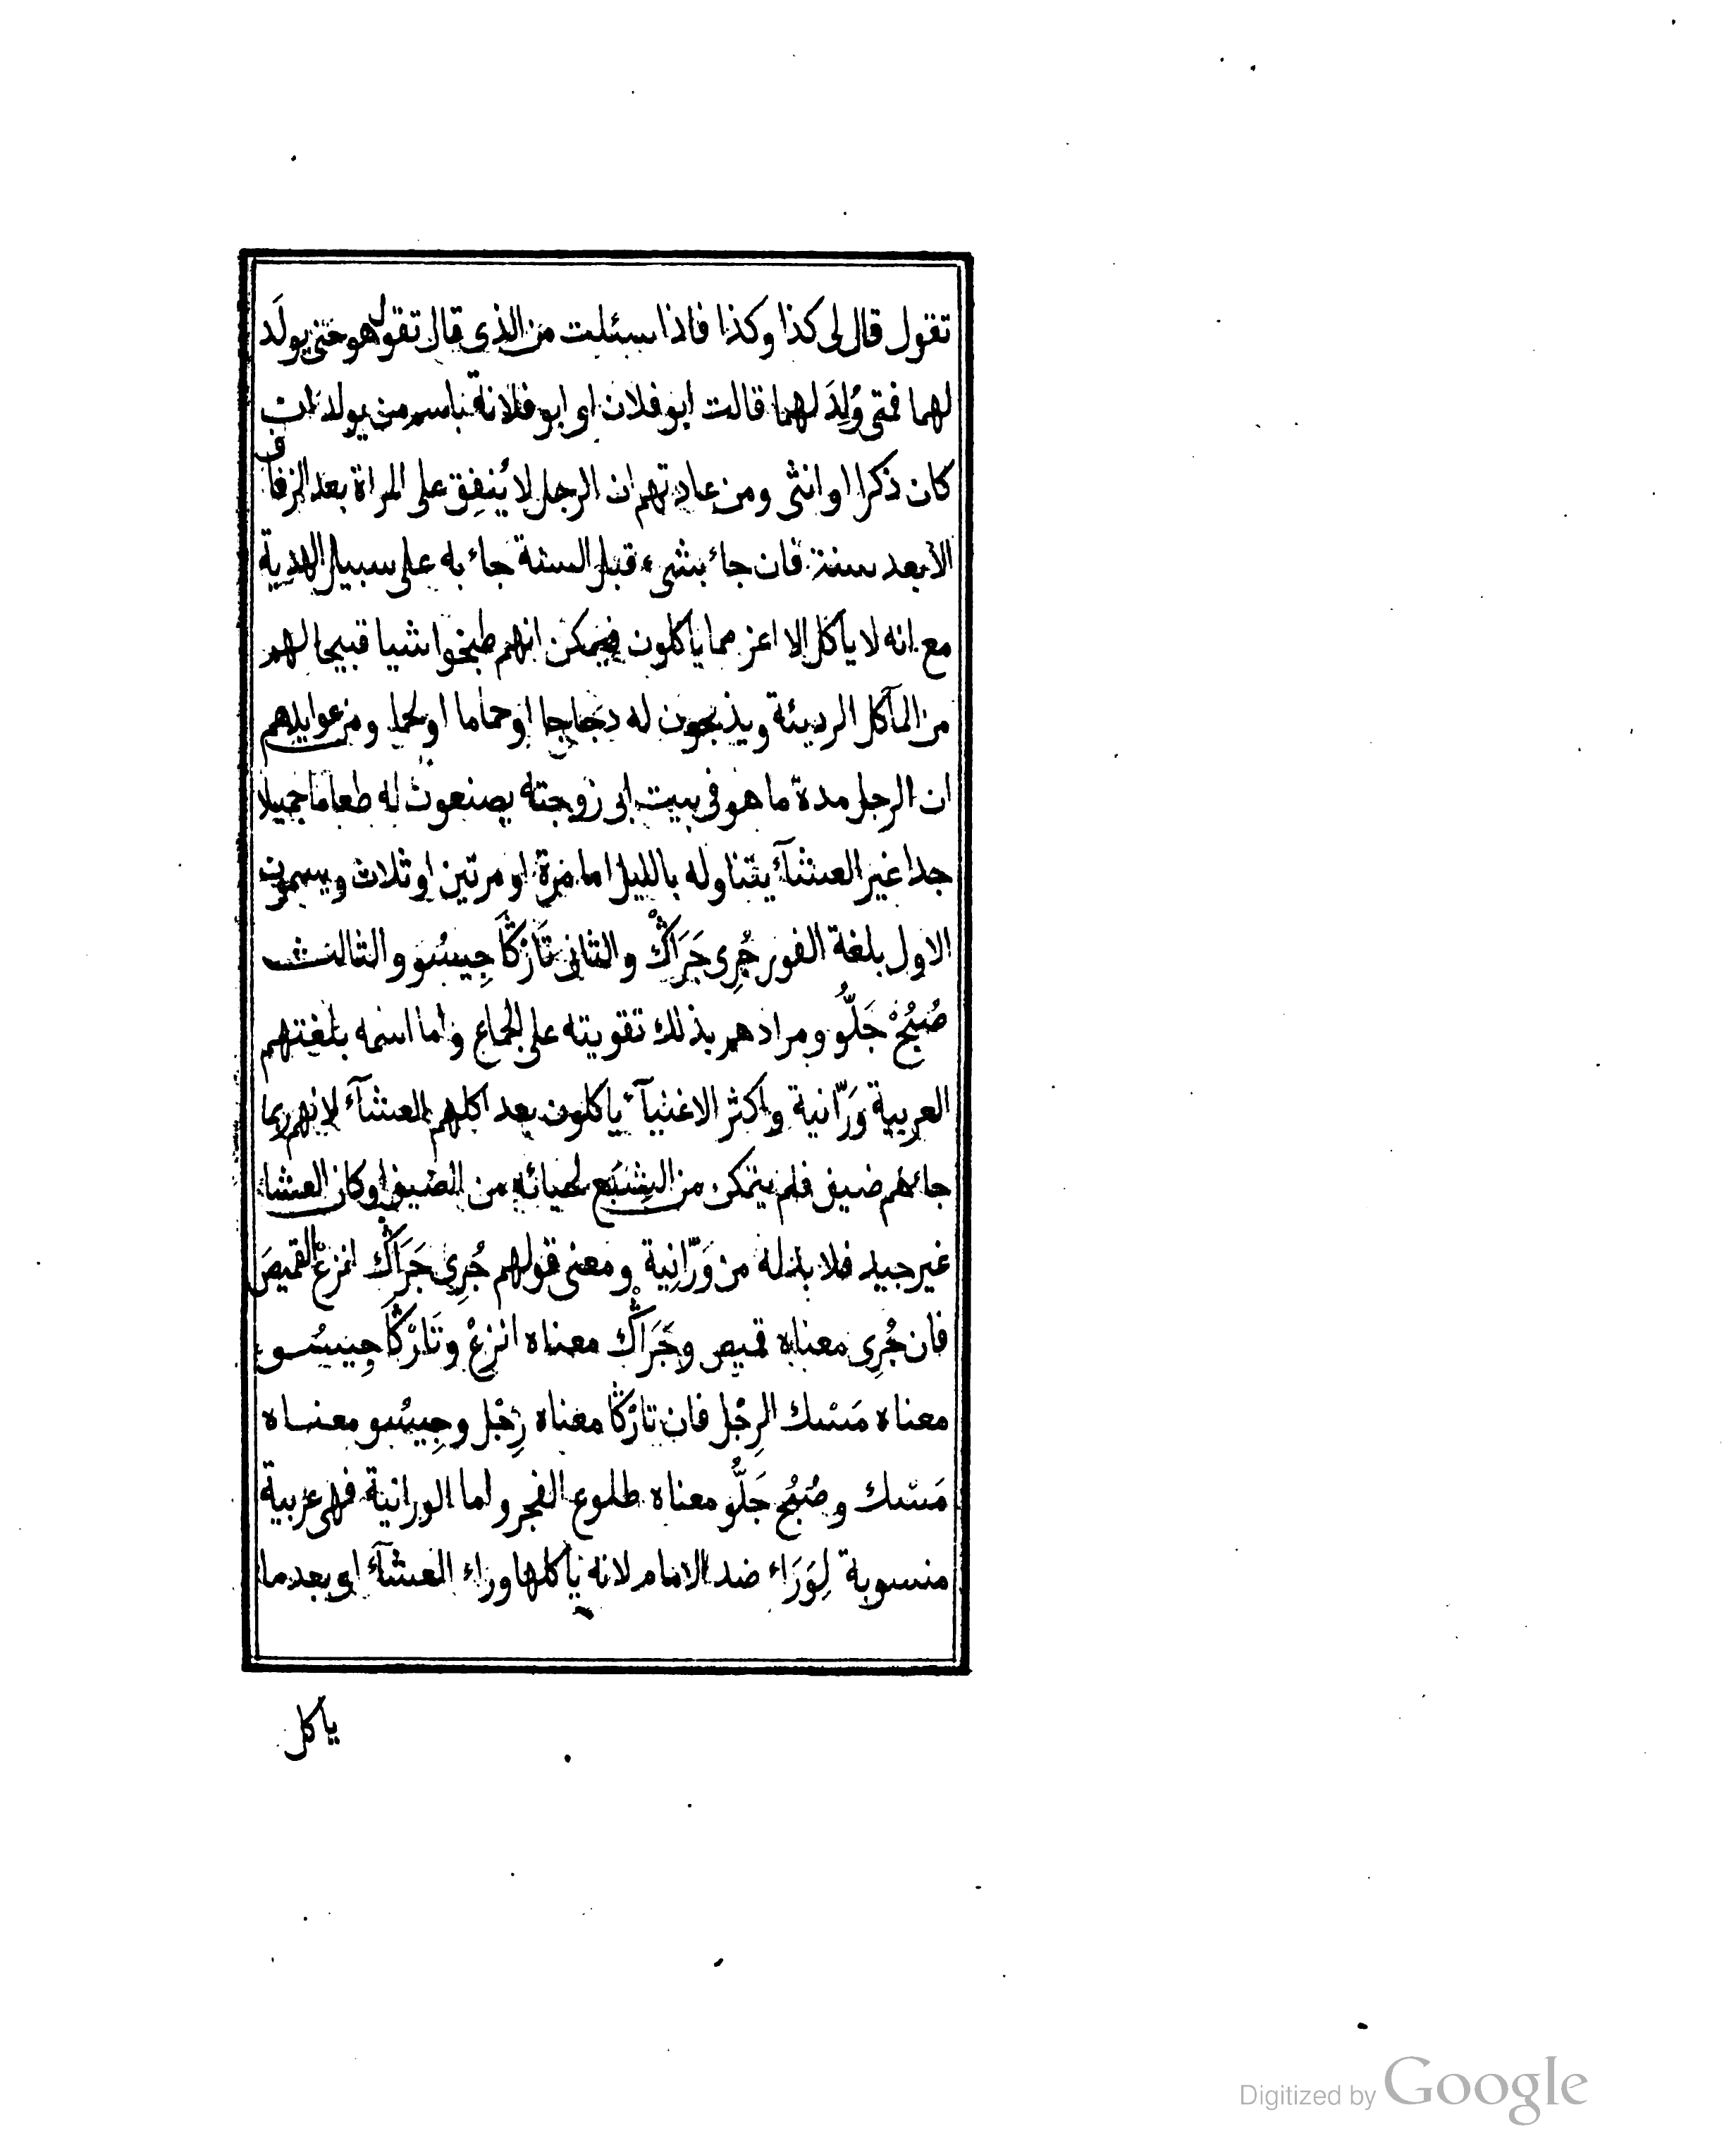 تقول قال لى كذا وكذا فاذا سئلت من الذى قال تقول هو حتى يولَد
لهما فمتى وُلِدَ لهما قالت ابو فلان او ابو فلانة باسم من يولد ان
كان ذكرا او انثى ومن عادتهم ان الرجل لا يُنفِق على المراة بعد الزفاف
الا بعد سنة فان جاء بشىء قبل السنة جاء به على سبيل الهدية
مع انه لا ياكل الا اعز مما ياكلون فيمكن انهم طبخوا شيا قبيحا لهم
من المآكل الرديئة ويذبحون له دجاجا او حماما او لحما ومن عوايدهم
ان الرجل مدة ما هو فى بيت ابى زوجته يصنعون له طعاما جميلا
جدا غير العشآء يتناوله بالليل اما مرة او مرتين او ثلاث ويسمون
الاول بلغة الفور جُرِى جَرَاڭْ والثانى تَارْڭَا جِيسُو والثالث
صُبُحْ جَلُّو ومرادهم بذلك تقويته على الجماع واما اسمه بلغتهم
العربية وَرّانية واكثر الاغنيآء ياكلون بعد اكلهم العشآء لانهم ربما
جاءهم ضيف فلم يتمكن من الشِبَع لحيائه من الضيف او كان العشاء
غير جيد فلا بد له من وَرّانِية ومعنى قولهم جُرِى جَرَاڭْ انزعْ القميصَ
فان جُرِى معناه قميص وجَرَاڭْ معناه انزعْ وتَارْڭَا جِيسُو
معناه مَسْك الرِجْل فان تارْڭَا معناه رِجْل وجِيسُو معناه
مَسْك وصُبُحْ جَلُّو معناه طلوع الفجر واما الورانية فهى عربية
منسوبة لِوَرَاء ضد الامام لانه ياكلها وراء العشآء اى بعد ما
ياكل
Digitized by Google